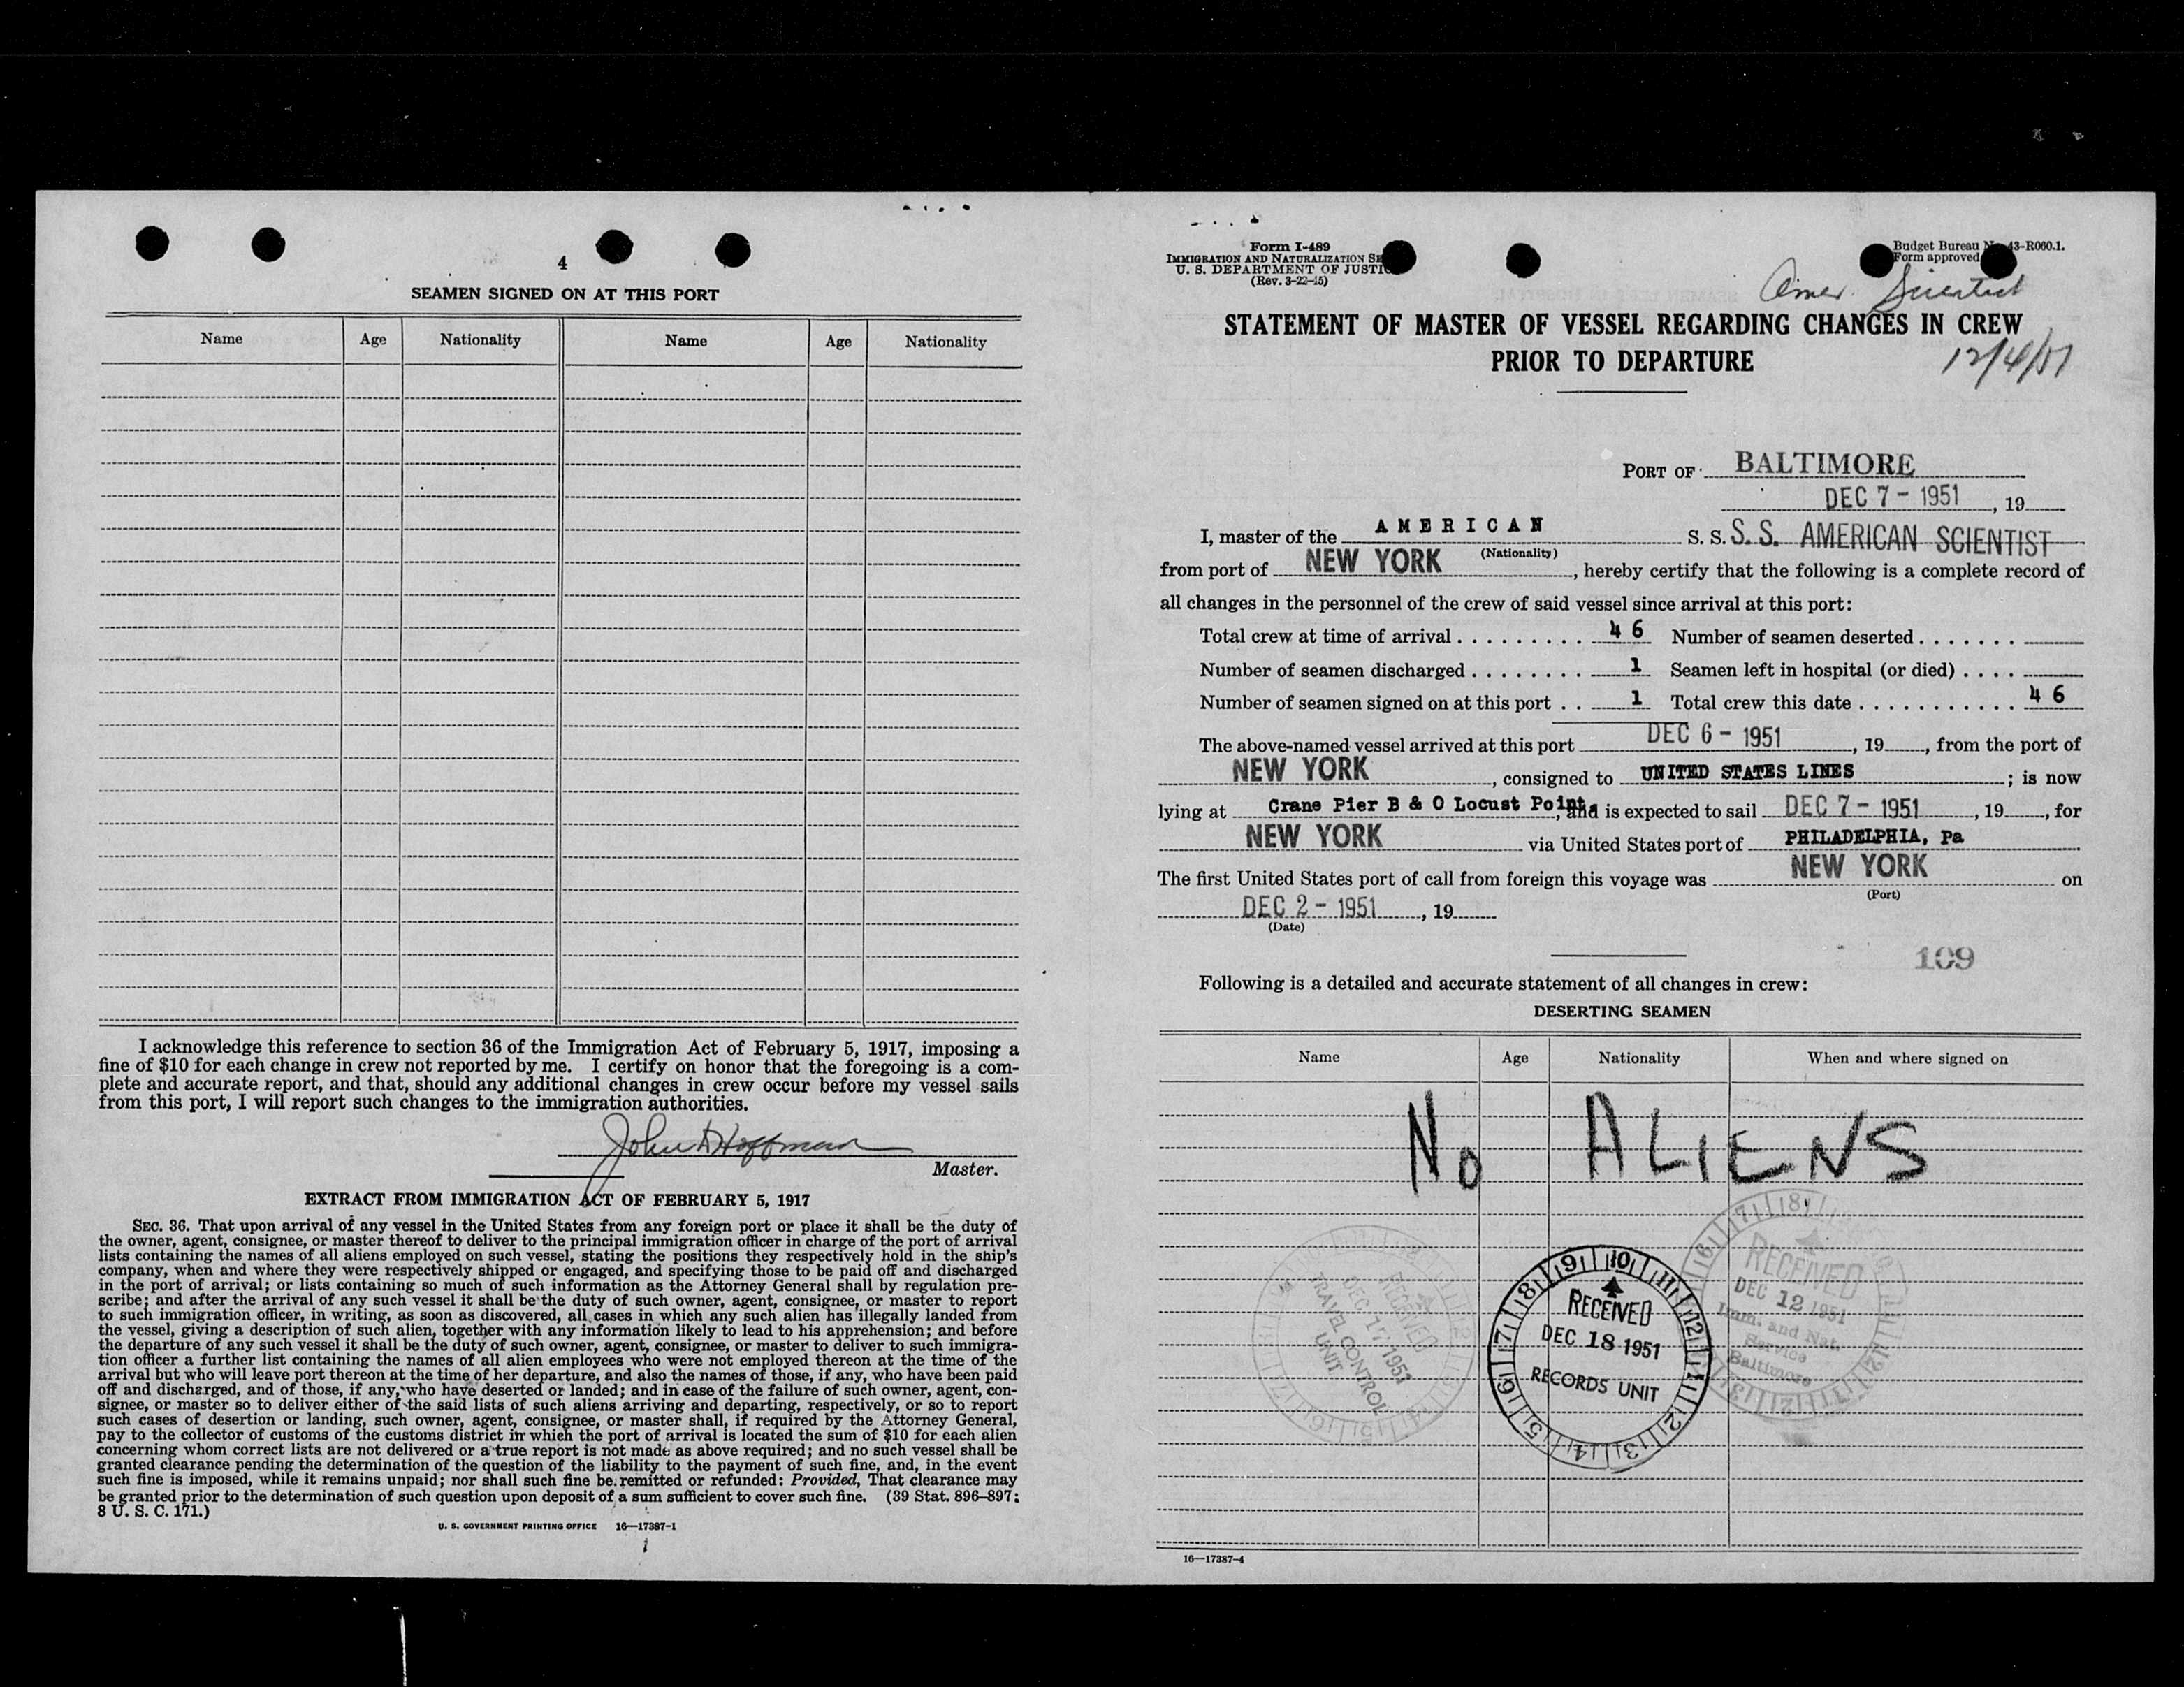 4
SEAMEN SIGNED ON AT THIS PORT
Name Age Nationality Name Age Nationality
I acknowledge this reference to section 36 of the Immigration Act of February 5, 1917, imposing a
fine of $10 for each change in crew not reported by me. I certify on honor that the foregoing is a com-
plete and accurate report, and that, should any additional changes in crew occur before my vessel sails
from this port, I will report such changes to the immigration authorities.
John Hoffman
Master.
EXTRACT FROM IMMIGRATION ACT OF FEBRUARY 5, 1917
SEC. 36. That upon arrival of any vessel in the United States from any foreign port or place it shall be the duty of
the owner, agent, consignee, or master thereof to deliver to the principal immigration officer in charge of the port of arrival
lists containing the names of all aliens employed on such vessel, stating the positions they respectively hold in the ship's
company, when and where they were respectively shipped or engaged, and specifying those to be paid off and discharged
in the port of arrival; or lists containing so much of such information as the Attorney General shall by regulation pre-
scribe; and after the arrival of any such vessel it shall be the duty of such owner, agent, consignee, or master to report
to such immigration officer, in writing, as soon as discovered, all cases in which any such alien has illegally landed from
the vessel, giving a description of such alien, together with any information likely to lead to his apprehension; and before
the departure of any such vessel it shall be the duty of such owner, agent, consignee, or master to deliver to such immigra-
tion officer a further list containing the names of all alien employees who were not employed thereon at the time of the
arrival but who will leave port thereon at the time of her departure, and also the names of those, if any, who have been paid
off and discharged, and of those, if any, who have deserted or landed; and in case of the failure of such owner, agent, con-
signee, or master so to deliver either of the said lists of such aliens arriving and departing, respectively, or so to report
such cases of desertion or landing, such owner, agent, consignee, or master shall, if required by the Attorney General,
pay to the collector of customs of the customs district in which the port of arrival is located the sum of $10 for each alien
concerning whom correct lists are not delivered or a true report is not made as above required; and no such vessel shall be
granted clearance pending the determination of the question of the liability to the payment of such fine, and, in the event
such fine is imposed, while it remains unpaid; nor shall such fine be remitted or refunded: Provided, That clearance may
be granted prior to the determination of such question upon deposit of a sum sufficient to cover such fine. (39 Stat. 896–897;
8 U. S. C. 171.)
U. S. GOVERNMENT PRINTING OFFICE 16—17387-1
Form I-489
IMMIGRATION AND NATURALIZATION
U. S. DEPARTMENT OF JUSTICE
(Rev. 3-22-45)
Budget Bureau 43-R060.1.
Form approved
Amer. Scientist
STATEMENT OF MASTER OF VESSEL REGARDING CHANGES IN CREW
PRIOR TO DEPARTURE
12/4/51
PORT OF BALTIMORE
DEC 7 - 1951, 19
I, master of the AMERICAN S. S. S. S. AMERICAN SCIENTIST
(Nationality)
from port of NEW YORK, hereby certify that the following is a complete record of
all changes in the personnel of the crew of said vessel since arrival at this port:
Total crew at time of arrival 46 Number of seamen deserted
Number of seamen discharged 1 Seamen left in hospital (or died)
Number of seamen signed on at this port 1 Total crew this date 46
The above-named vessel arrived at this port DEC 6 - 1951, 19, from the port of
NEW YORK, consigned to UNITED STATES LINES; is now
lying at Crane Pier B & O Locust Point, and is expected to sail DEC 7 - 1951, 19, for
NEW YORK via United States port of PHILADELPHIA, Pa
The first United States port of call from foreign this voyage was NEW YORK on
(Port)
DEC 2 - 1951, 19
(Date)
109
Following is a detailed and accurate statement of all changes in crew:
DESERTING SEAMEN
Name Age Nationality When and where signed on
No ALIENS
RECEIVED
DEC 17 1951
TRAVEL CONTROL
UNIT
RECEIVED
DEC 18 1951
RECORDS UNIT
RECEIVED
DEC 12 1951
Imm. and Nat.
Service
Baltimore
16—17387-4